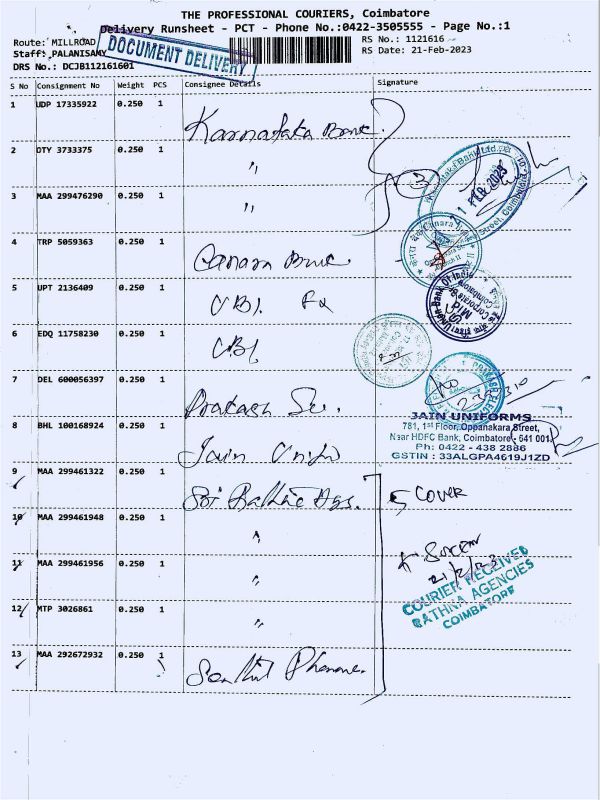 THE PROFESSIONAL COURIERS, Coimbatore
Delivery Runsheet - PCT - Phone No.:0422-3505555 - Page No.:1
Route: MILLROAD
RS No.: 1121616
Staff: PALANISAMY
RS Date: 21-Feb-2023
DRS No.: DCJB112161601
DOCUMENT DELIVERY
S No Consignment No Weight PCS Consignee Details Signature
1 UDP 17335922 0.250 1 Karnataka Bank
2 DTY 3733375 0.250 1 "
3 MAA 299476290 0.250 1 "
4 TRP 5059363 0.250 1 Canara Bank
5 UPT 2136409 0.250 1 UBI
6 EDQ 11758230 0.250 1 CBI
7 DEL 600056397 0.250 1 Prakash
8 BHL 100168924 0.250 1 Jain
JAIN UNIFORMS
781, 1st Floor, Oppanakara Street,
Near HDFC Bank, Coimbatore - 641 001.
Ph: 0422 - 438 2886
GSTIN : 33ALGPA4619J1ZD
9 MAA 299461322 0.250 1 Sri Rathna Ags.
5 Cover
10 MAA 299461948 0.250 1 "
11 MAA 299461956 0.250 1 "
21/2/23
COURIER RECEIVED
RATHNA AGENCIES
COIMBATORE
12 MTP 3026861 0.250 1 "
13 MAA 292672932 0.250 1 Senthil